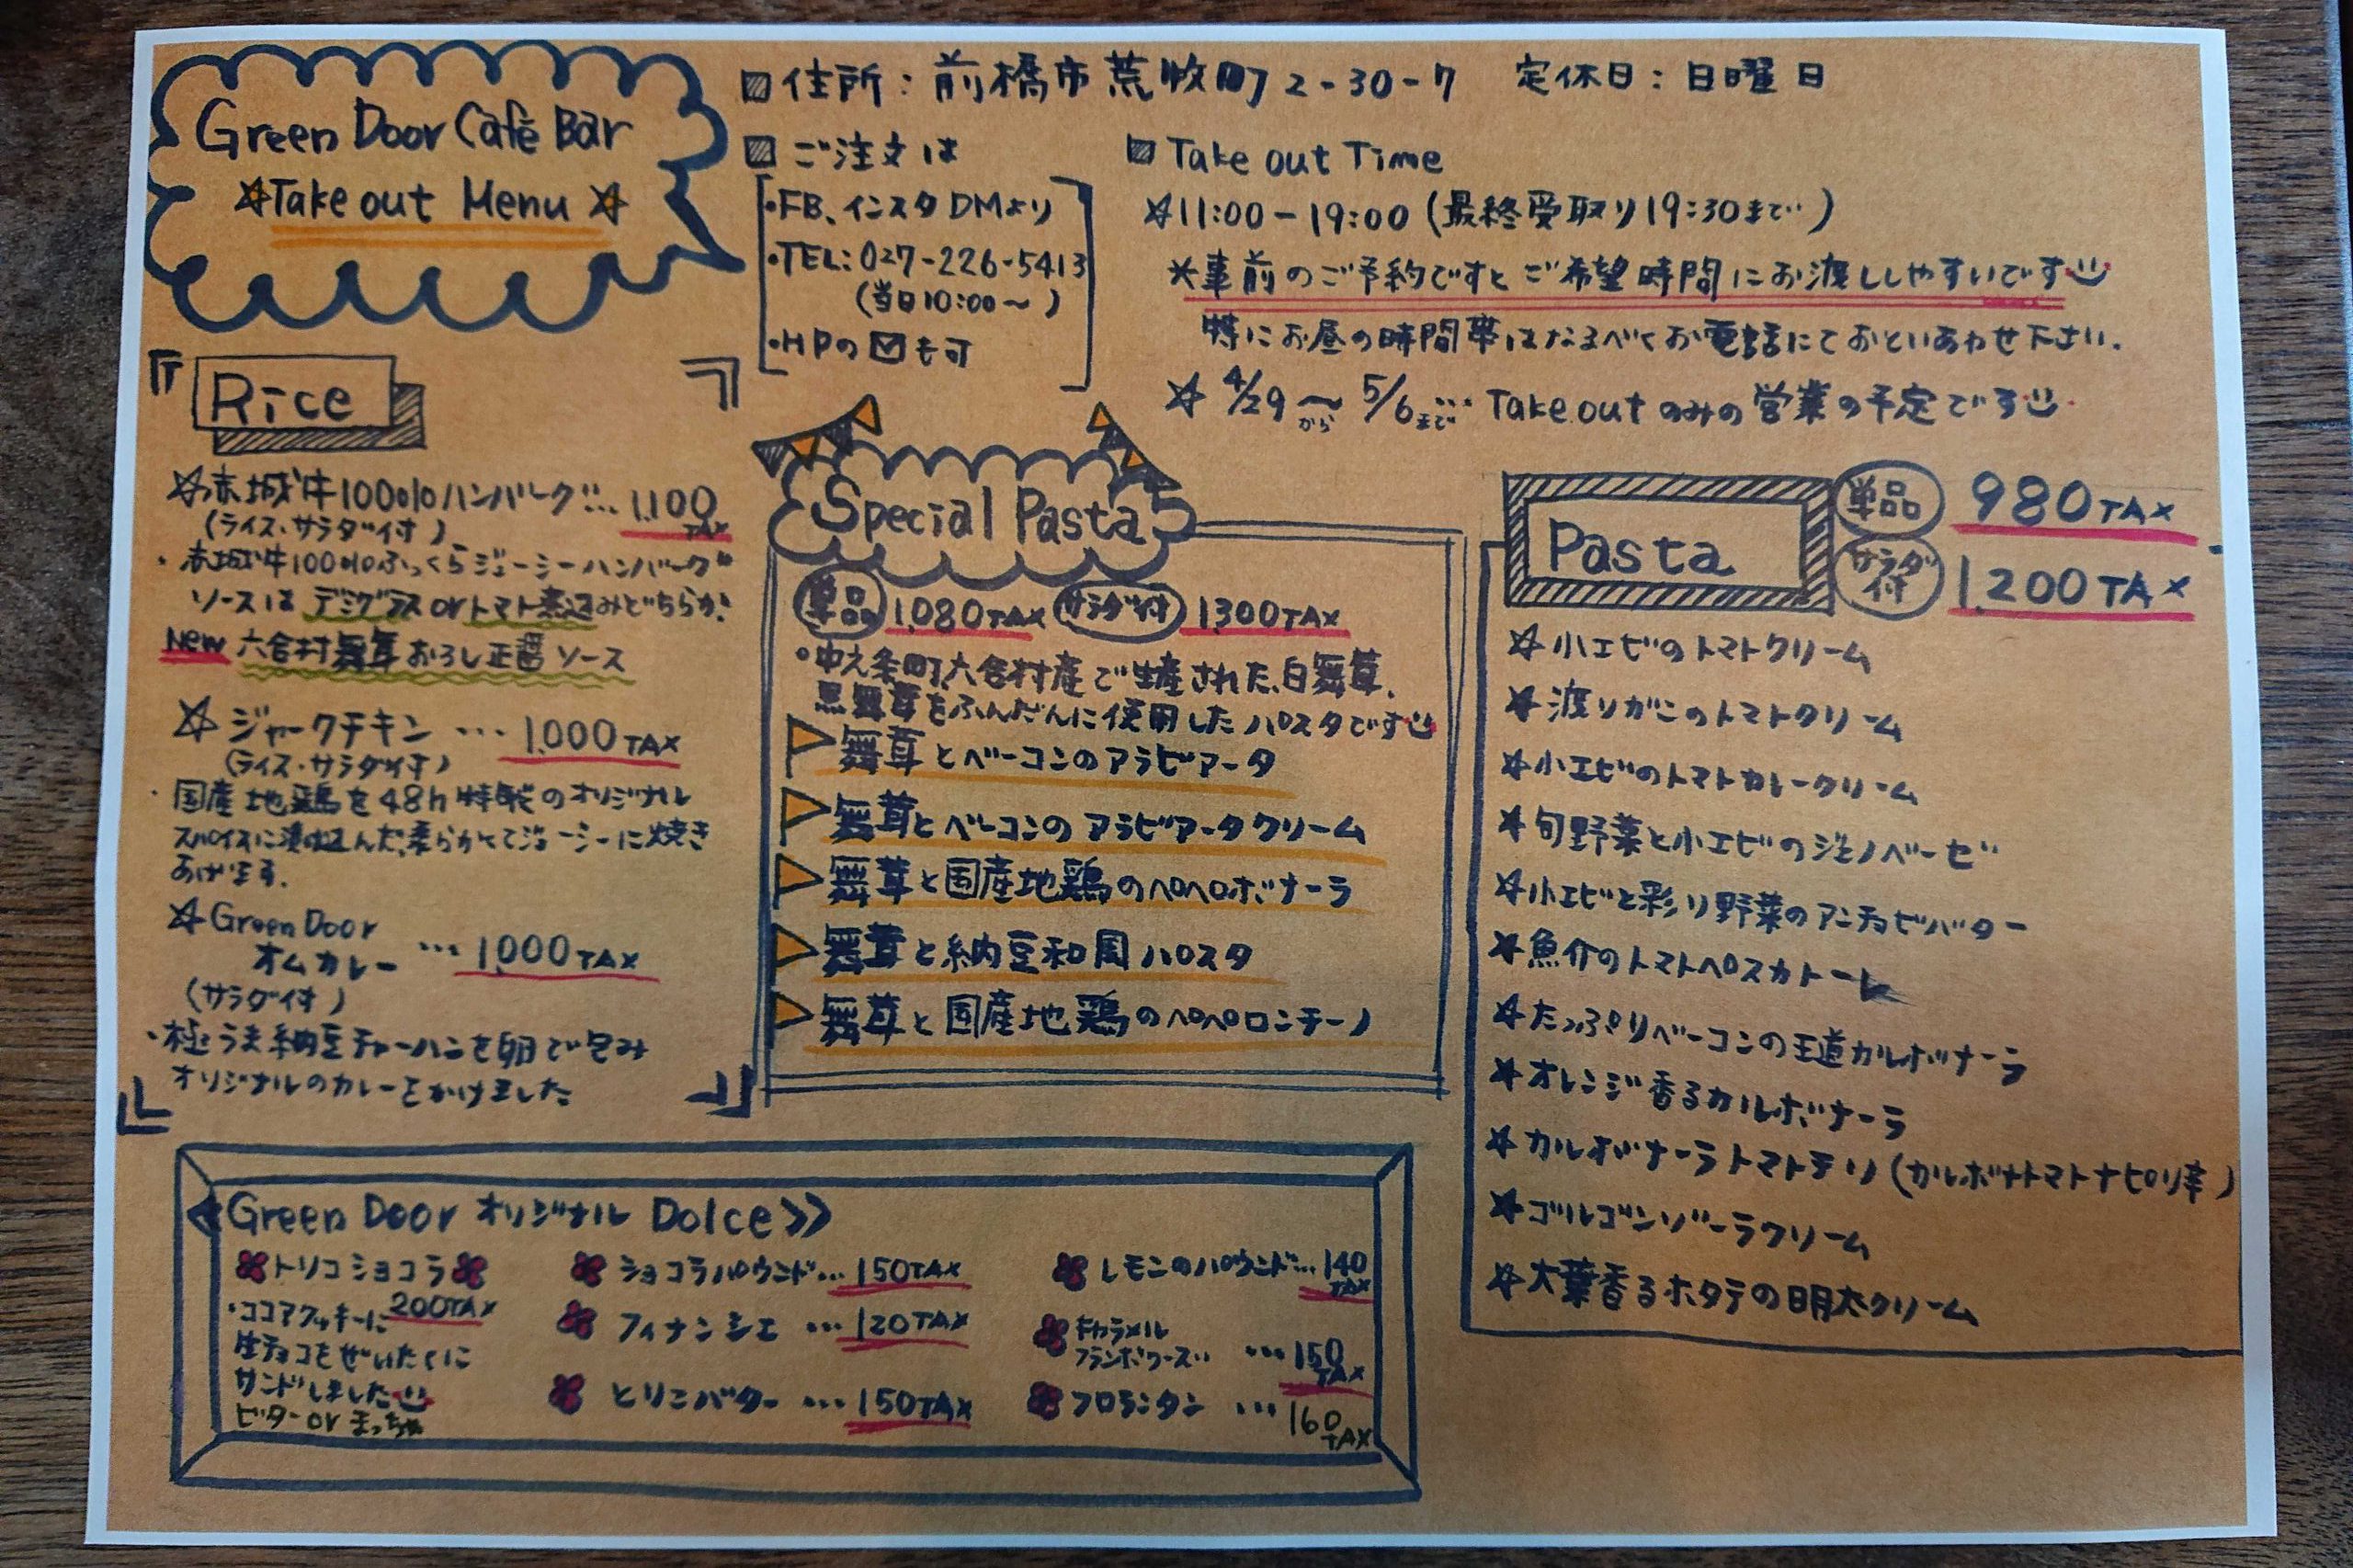 Green Door Café Bar
☆Take out Menu☆
住所:前橋市荒牧町2-30-7 定休日:日曜日
ご注文は
・FB、インスタDMより
・TEL:027-226-5413
(当日10:00〜)
・HPの✉も可
Take out Time
☆11:00-19:00(最終受取り19:30まで)
※事前のご予約ですとご希望時間にお渡ししやすいです
特にお昼の時間帯はなるべくお電話にておといあわせ下さい.
☆4/29から〜5/6まで… Take outのみの営業の予定です
Rice
☆赤城牛100%ハンバーグ…1,100TAX
(ライス・サラダ付)
・赤城牛100%ふっくらジューシーハンバーグ
ソースはデミグラスorトマト煮込みどちらか!
New 六合村舞茸おろし正醤ソース
☆ジャークチキン…1,000TAX
(ライス・サラダ付)
・国産地鶏を48h特製のオリジナル
スパイスに漬け込んだ、柔らかくてジューシーに焼き
あげます.
☆Green Door
オムカレー…1,000TAX
(サラダ付)
・極うま納豆チャーハンを卵で包み
オリジナルのカレーをかけました
Special Pasta
単品 1,080TAX サラダ付 1,300TAX
・中之条町六合村産で生産された、白舞茸、
黒舞茸をふんだんに使用したパスタです
舞茸とベーコンのアラビアータ
舞茸とベーコンのアラビアータクリーム
舞茸と国産地鶏のペペロボナーラ
舞茸と納豆和風パスタ
舞茸と国産地鶏のペペロンチーノ
Pasta
単品 980TAX
サラダ付 1,200TAX
☆小エビのトマトクリーム
☆渡りがにのトマトクリーム
☆小エビのトマトカレークリーム
☆旬野菜と小エビのジェノベーゼ
☆小エビと彩り野菜のアンチョビバター
☆魚介のトマトペスカトーレ
☆たっぷりベーコンの王道カルボナーラ
☆オレンジ香るカルボナーラ
☆カルボナーラトマトテリ(カルボナトマトナピリ辛)
☆ゴルゴンゾーラクリーム
☆大葉香るホタテの明太クリーム
≪Green Door オリジナル Dolce≫
トリコショコラ
200TAX
・ココアクッキーに
生チョコをぜいたくに
サンドしました
ビターorまっちゃ
ショコラパウンド…150TAX
フィナンシェ…120TAX
とりこバター…150TAX
レモンのパウンド…140TAX
キャラメル
フランボワーズ…150TAX
フロランタン…160TAX